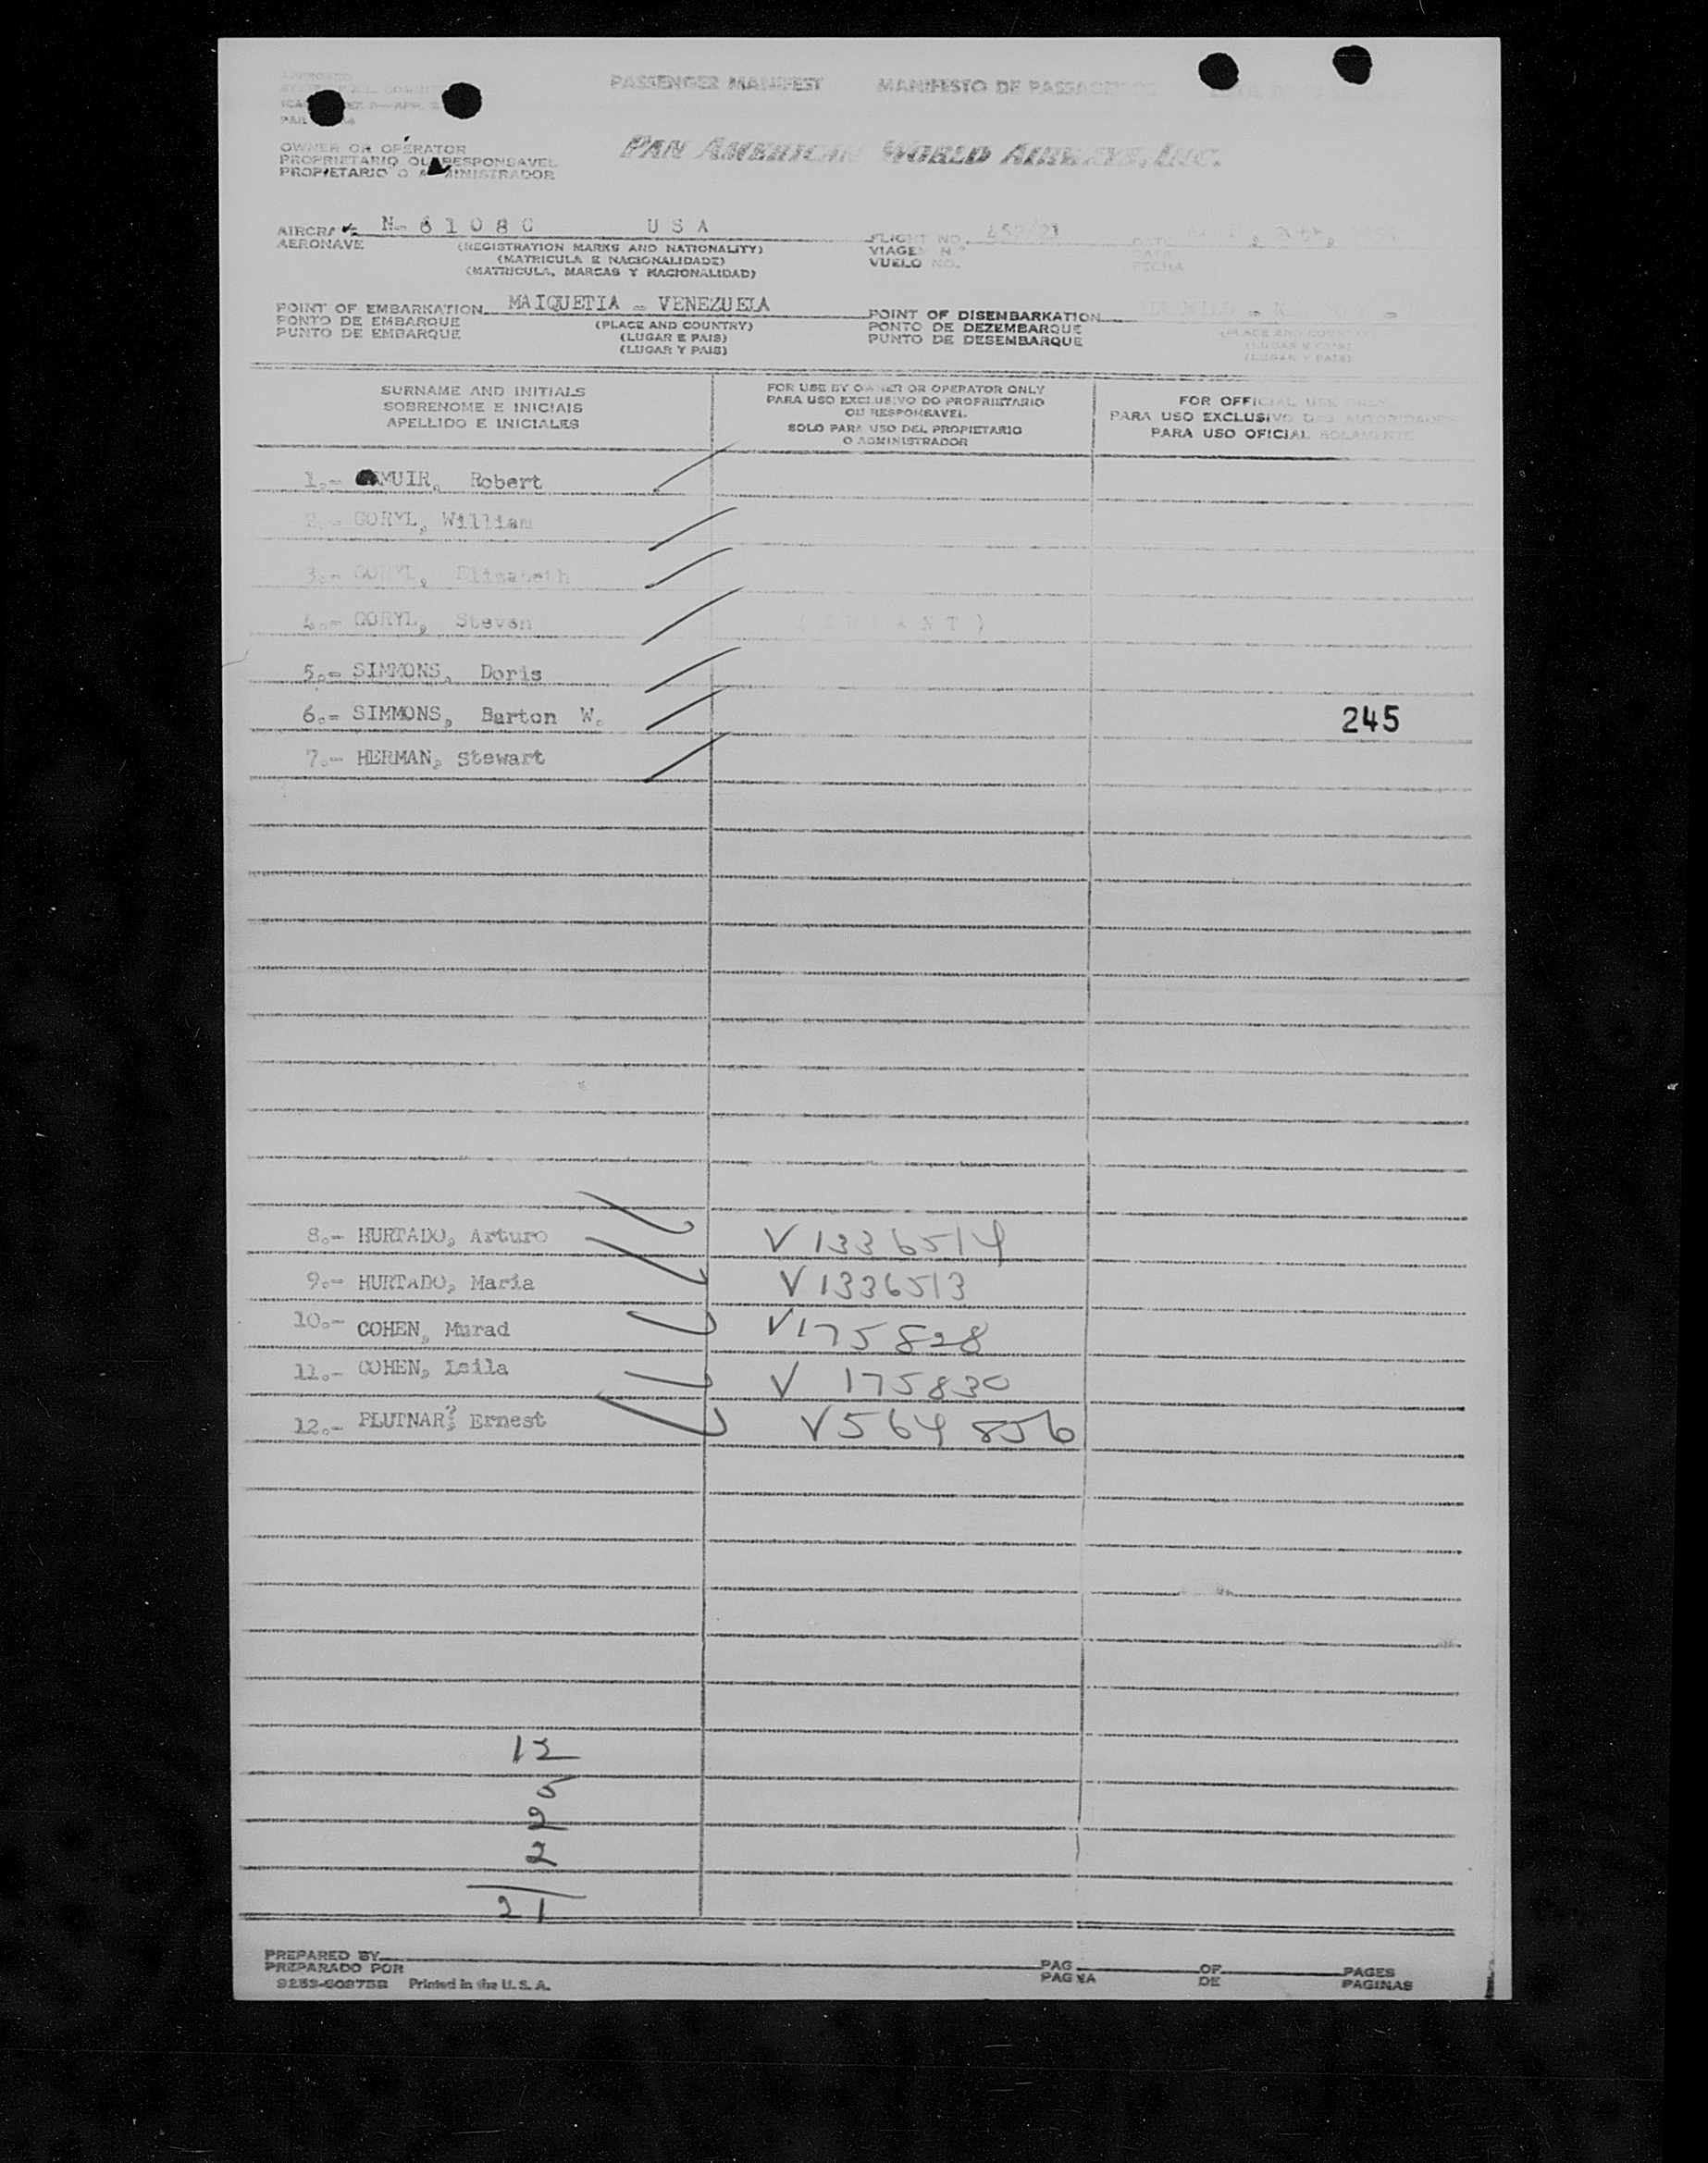 PASSENGER MANIFEST MANIFESTO DE
PAN AMERICAN WORLD AIRWAYS, INC.
OWNER OR OPERATOR
PROPRIETARIO OU RESPONSAVEL
PROPIETARIO O ADMINISTRADOR
AIRCRAFT N-61080 USA
AERONAVE
(REGISTRATION MARKS AND NATIONALITY)
(MATRICULA E NACIONALIDADE)
(MATRICULA, MARCAS Y NACIONALIDAD)
FLIGHT NO.
VIAGEM N.º
VUELO NO.
POINT OF EMBARKATION MAIQUETIA - VENEZUELA
PONTO DE EMBARQUE
PUNTO DE EMBARQUE
(PLACE AND COUNTRY)
(LUGAR E PAIS)
(LUGAR Y PAIS)
POINT OF DISEMBARKATION
PONTO DE DEZEMBARQUE
PUNTO DE DESEMBARQUE
(PLACE AND COUNTRY)
(LUGAR E PAIS)
(LUGAR Y PAIS)
SURNAME AND INITIALS
SOBRENOME E INICIAIS
APELLIDO E INICIALES
FOR USE BY OWNER OR OPERATOR ONLY
PARA USO EXCLUSIVO DO PROPRIETARIO
OU RESPONSAVEL
SOLO PARA USO DEL PROPIETARIO
O ADMINISTRADOR
FOR OFFICIAL USE ONLY
PARA USO EXCLUSIVO DAS AUTORIDADES
PARA USO OFICIAL SOLAMENTE
1.- MUIR, Robert
2.- CORYL, William
3.- CORYL, Elizabeth
4.- CORYL, Steven (INFANT)
5.- SIMMONS, Doris
6.- SIMMONS, Barton W. 245
7.- HERMAN, Stewart
8.- HURTADO, Arturo V 1336514
9.- HURTADO, Maria V 1336513
10.- COHEN, Murad V175828
11.- COHEN, Leila V 175830
12.- PLUTNAR, Ernest V564856
12
5
2
2
21
PREPARED BY
PREPARADO POR
Printed in the U. S. A.
PAG OF PAGES
PAGINA DE PAGINAS